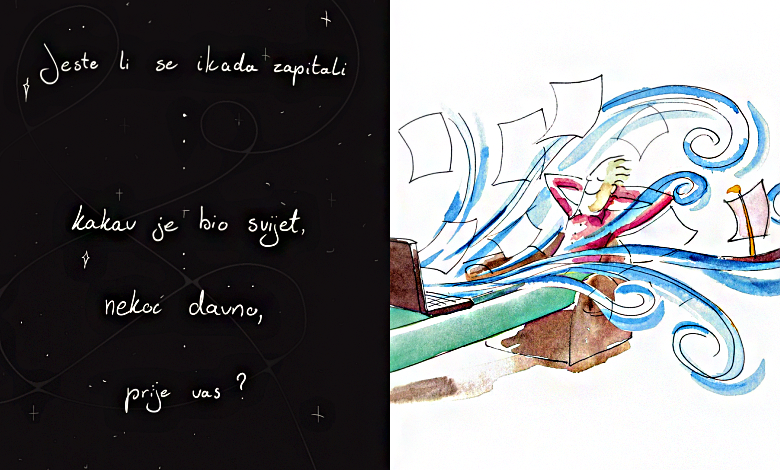 Jeste li se ikada zapitali
kakav je bio svijet,
nekoć davno,
prije vas?